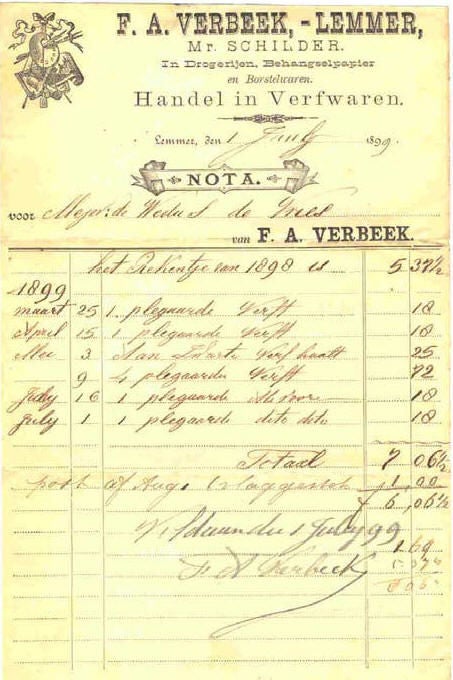 F. A. VERBEEK, - LEMMER,
Mr. SCHILDER.
In Drogerijen, Behangselpapier
en Borstelwaren.
Handel in Verfwaren.
Lemmer, den 1 July 1899.
NOTA.
voor Mejr: de Wedu S de Vries
van F. A. VERBEEK.
het Rekentje van 1898 is 5 37½
1899
maart 25 1 plegaarde Verft 18
April 15 1 plegaarde Verft 18
Mei 3 Aan Swarte Verf haalt 25
9 4 plegaarde Verft 72
16 1 plegaarde 18
July 1 1 plegaarde dito dito 18
Totaal 7 06½
post af Aug. 1 00
6,06½
July 99
F A Verbeek